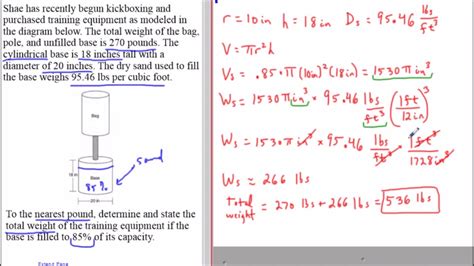 Shae has recently begun kickboxing and
purchased training equipment as modeled in
the diagram below. The total weight of the bag,
pole, and unfilled base is 270 pounds. The
cylindrical base is 18 inches tall with a
diameter of 20 inches. The dry sand used to fill
the base weighs 95.46 lbs per cubic foot.
Bag
sand
18 in
Base
85%
20 in
To the nearest pound, determine and state the
total weight of the training equipment if the
base is filled to 85% of its capacity.
r = 10 in h = 18 in Ds = 95.46 lbs/ft³
V = πr²h
Vs = .85·π(10in)²(18in) = 1530π in³
Ws = 1530π in³ × 95.46 lbs/ft³ (1ft/12in)³
Ws = 1530π in³ × 95.46 lbs/ft³ × 1ft³/1728in³
Ws = 266 lbs
total weight = 270 lbs + 266 lbs = 536 lbs